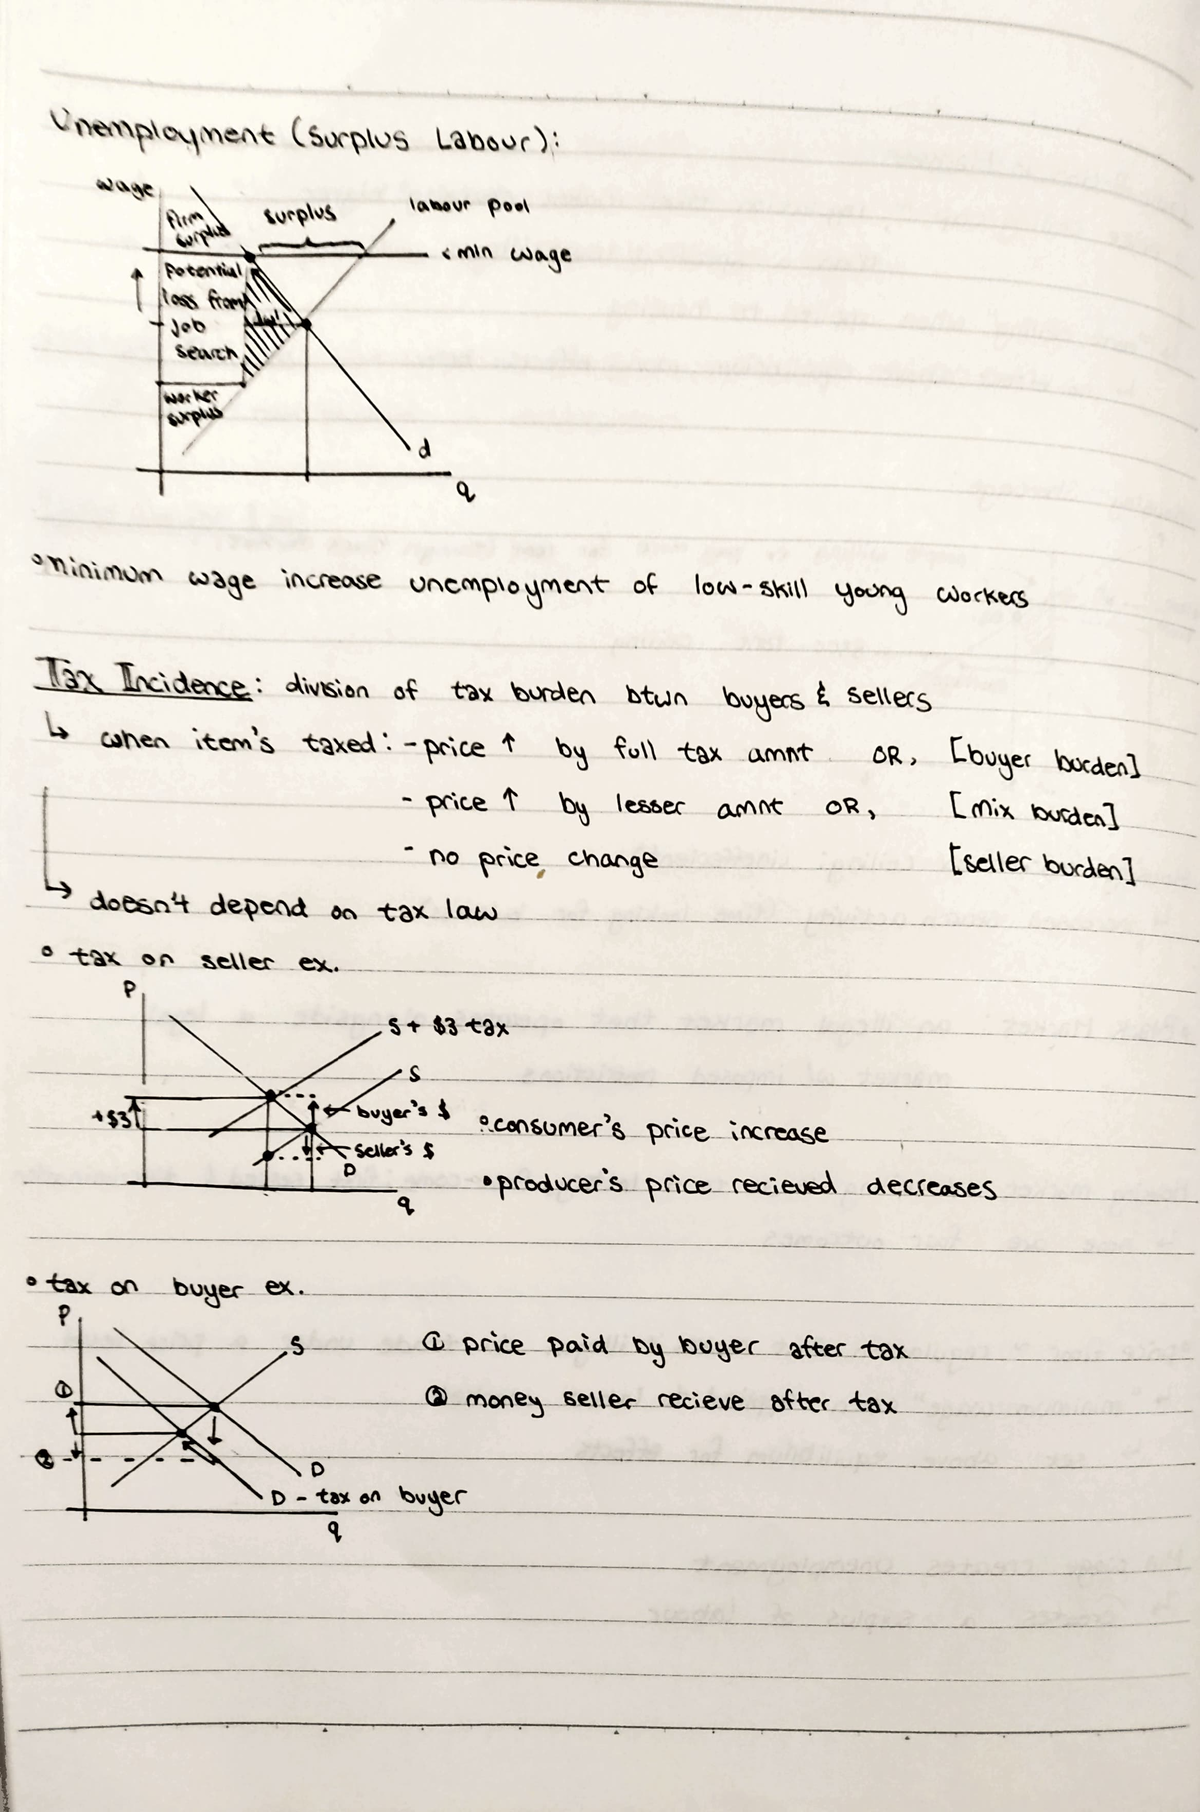 Unemployment (Surplus Labour):
wage
firm surplus
surplus
labour pool
< min wage
potential
loss from
job
search
dwl
worker
surplus
d
q
• minimum wage increase unemployment of low-skill young workers
Tax Incidence: division of tax burden btwn buyers & sellers
↳ when item's taxed: - price ↑ by full tax amnt OR, [buyer burden]
- price ↑ by lesser amnt OR, [mix burden]
- no price change [seller burden]
↳ doesn't depend on tax law
• tax on seller ex.
P
S + $3 tax
S
+$3
← buyer's $
← seller's $
D
q
• consumer's price increase
• producer's price recieved decreases
• tax on buyer ex.
P
S
①
②
D
D - tax on buyer
q
① price paid by buyer after tax
② money seller recieve after tax